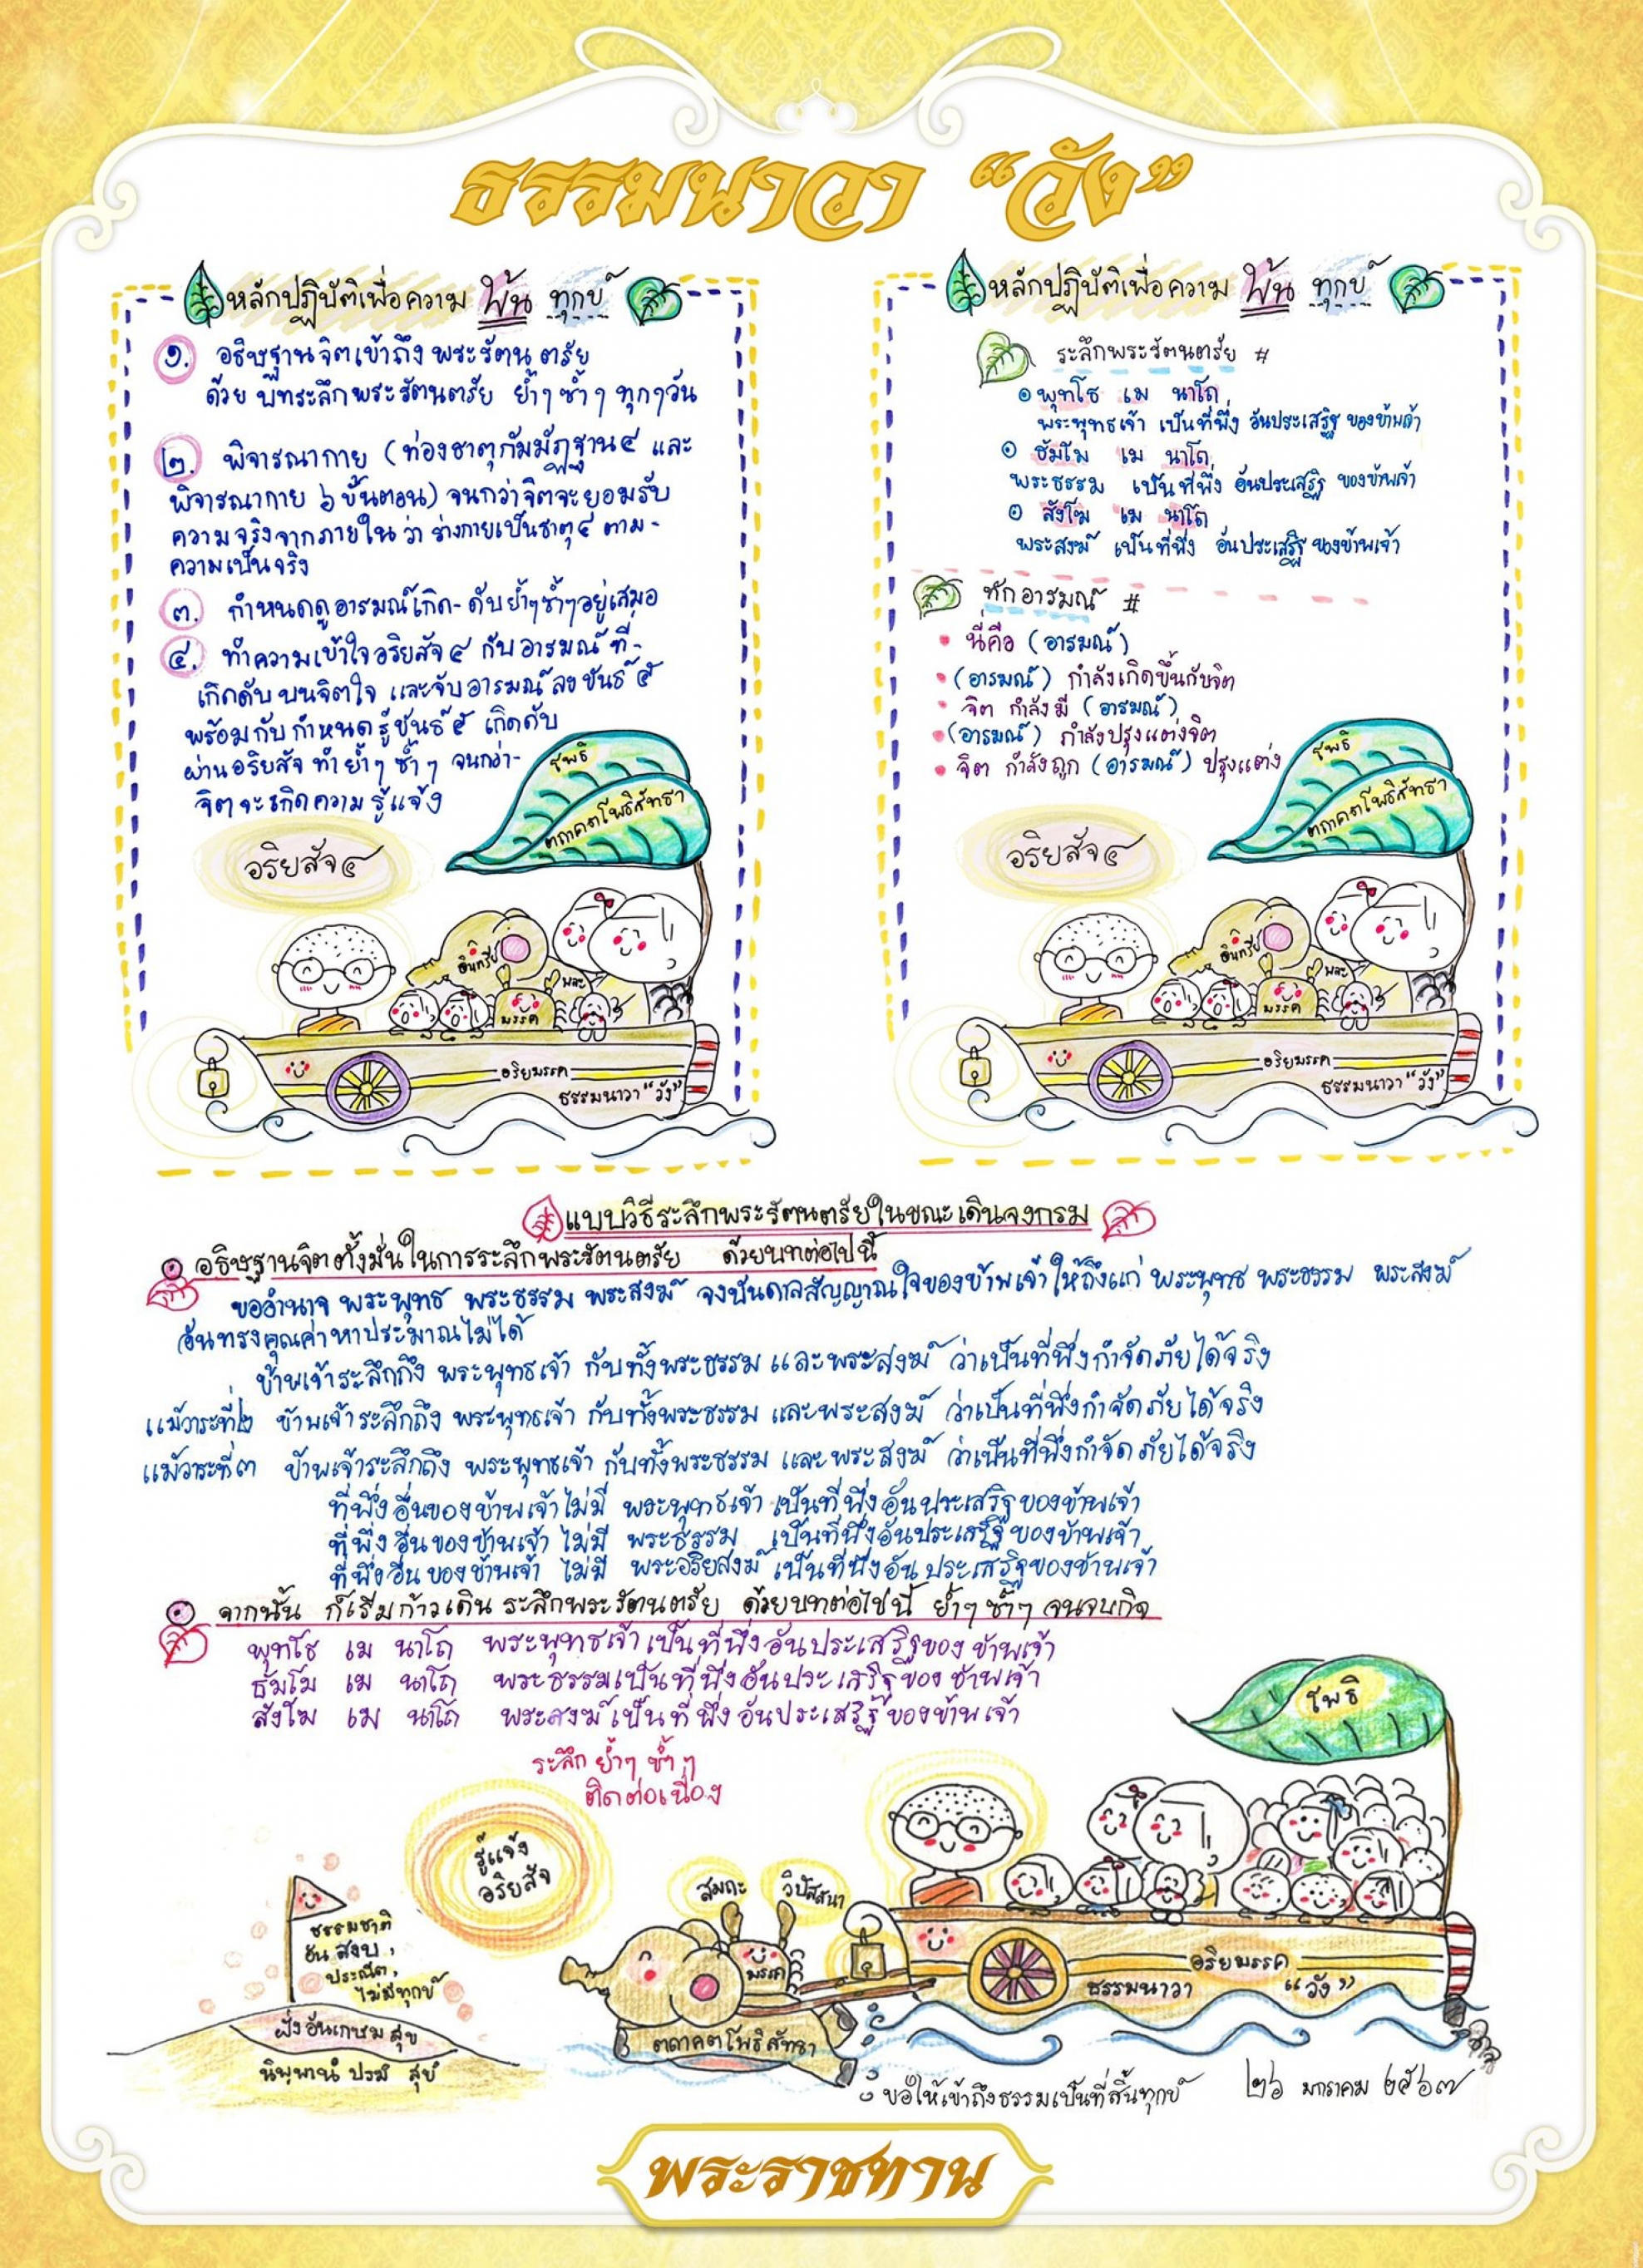 ธรรมนาวา “วัง”
หลักปฏิบัติเพื่อความ พ้น ทุกข์
๑. อธิษฐานจิตเข้าถึง พระรัตนตรัย
ด้วย บทระลึกพระรัตนตรัย ย้ำๆ ซ้ำๆ ทุกๆวัน
๒. พิจารณากาย (ท่องธาตุกัมมัฏฐาน๔ และ
พิจารณากาย ๖ ขั้นตอน) จนกว่าจิตจะยอมรับ
ความจริงจากภายใน ว่า ร่างกายเป็นธาตุ๔ ตาม-
ความเป็นจริง
๓. กำหนดดูอารมณ์เกิด-ดับย้ำๆซ้ำๆอยู่เสมอ
๔. ทำความเข้าใจอริยสัจ๔ กับอารมณ์ที่-
เกิดดับบนจิตใจ และจับอารมณ์ลงขันธ์ ๕
พร้อมกับกำหนดรู้ขันธ์๕ เกิดดับ
ผ่านอริยสัจ ทำย้ำๆ ซ้ำๆ จนกว่า-
จิตจะเกิดความรู้แจ้ง
โพธิ
ตถาคตโพธิสัทธา
อริยสัจ๔
อินทรีย์
พละ
มรรค
อริยมรรค
ธรรมนาวา “วัง”
หลักปฏิบัติเพื่อความ พ้น ทุกข์
ระลึกพระรัตนตรัย #
พุทโธ เม นาโถ
พระพุทธเจ้า เป็นที่พึ่ง อันประเสริฐ ของข้าพเจ้า
ธัมโม เม นาโถ
พระธรรม เป็นที่พึ่ง อันประเสริฐ ของข้าพเจ้า
สังโฆ เม นาโถ
พระสงฆ์ เป็นที่พึ่ง อันประเสริฐ ของข้าพเจ้า
ทักอารมณ์ #
• นี่คือ (อารมณ์)
• (อารมณ์) กำลังเกิดขึ้นกับจิต
• จิต กำลังมี (อารมณ์)
• (อารมณ์) กำลังปรุงแต่งจิต
• จิต กำลังถูก (อารมณ์) ปรุงแต่ง
โพธิ
ตถาคตโพธิสัทธา
อริยสัจ๔
อินทรีย์
พละ
มรรค
อริยมรรค
ธรรมนาวา “วัง”
แบบวิธีระลึกพระรัตนตรัยในขณะเดินจงกรม
อธิษฐานจิตตั้งมั่นในการระลึกพระรัตนตรัย ด้วยบทต่อไปนี้
ขออำนาจ พระพุทธ พระธรรม พระสงฆ์ จงบันดาลสัญญาณใจของข้าพเจ้าให้ถึงแก่ พระพุทธ พระธรรม พระสงฆ์
อันทรงคุณค่าหาประมาณไม่ได้
ข้าพเจ้าระลึกถึง พระพุทธเจ้า กับทั้งพระธรรม และพระสงฆ์ ว่าเป็นที่พึ่งกำจัดภัยได้จริง
แม้วาระที่๒ ข้าพเจ้าระลึกถึง พระพุทธเจ้า กับทั้งพระธรรม และพระสงฆ์ ว่าเป็นที่พึ่งกำจัดภัยได้จริง
แม้วาระที่๓ ข้าพเจ้าระลึกถึง พระพุทธเจ้า กับทั้งพระธรรม และพระสงฆ์ ว่าเป็นที่พึ่งกำจัดภัยได้จริง
ที่พึ่งอื่นของข้าพเจ้าไม่มี พระพุทธเจ้า เป็นที่พึ่งอันประเสริฐของข้าพเจ้า
ที่พึ่งอื่นของข้าพเจ้า ไม่มี พระธรรม เป็นที่พึ่งอันประเสริฐของข้าพเจ้า
ที่พึ่งอื่นของข้าพเจ้า ไม่มี พระอริยสงฆ์ เป็นที่พึ่งอันประเสริฐของข้าพเจ้า
จากนั้น ก็เริ่มก้าวเดิน ระลึกพระรัตนตรัย ด้วยบทต่อไปนี้ ย้ำๆ ซ้ำๆ จนจบกิจ
พุทโธ เม นาโถ พระพุทธเจ้าเป็นที่พึ่งอันประเสริฐของข้าพเจ้า
ธัมโม เม นาโถ พระธรรมเป็นที่พึ่งอันประเสริฐของข้าพเจ้า
สังโฆ เม นาโถ พระสงฆ์เป็นที่พึ่งอันประเสริฐของข้าพเจ้า
ระลึก ย้ำๆ ซ้ำๆ
ติดต่อเนื่อง
โพธิ
รู้แจ้ง
อริยสัจ
สมถะ
วิปัสสนา
มรรค
ธรรมชาติ
อันสงบ,
ประณีต,
ไม่มีทุกข์
ฝั่งอันเกษมสุข
นิพฺพานํ ปรมํ สุขํ
ตถาคตโพธิสัทธา
อริยมรรค
ธรรมนาวา “วัง”
ขอให้เข้าถึงธรรมเป็นที่สิ้นทุกข์
๒๖ มกราคม ๒๕๖๗
พระราชทาน